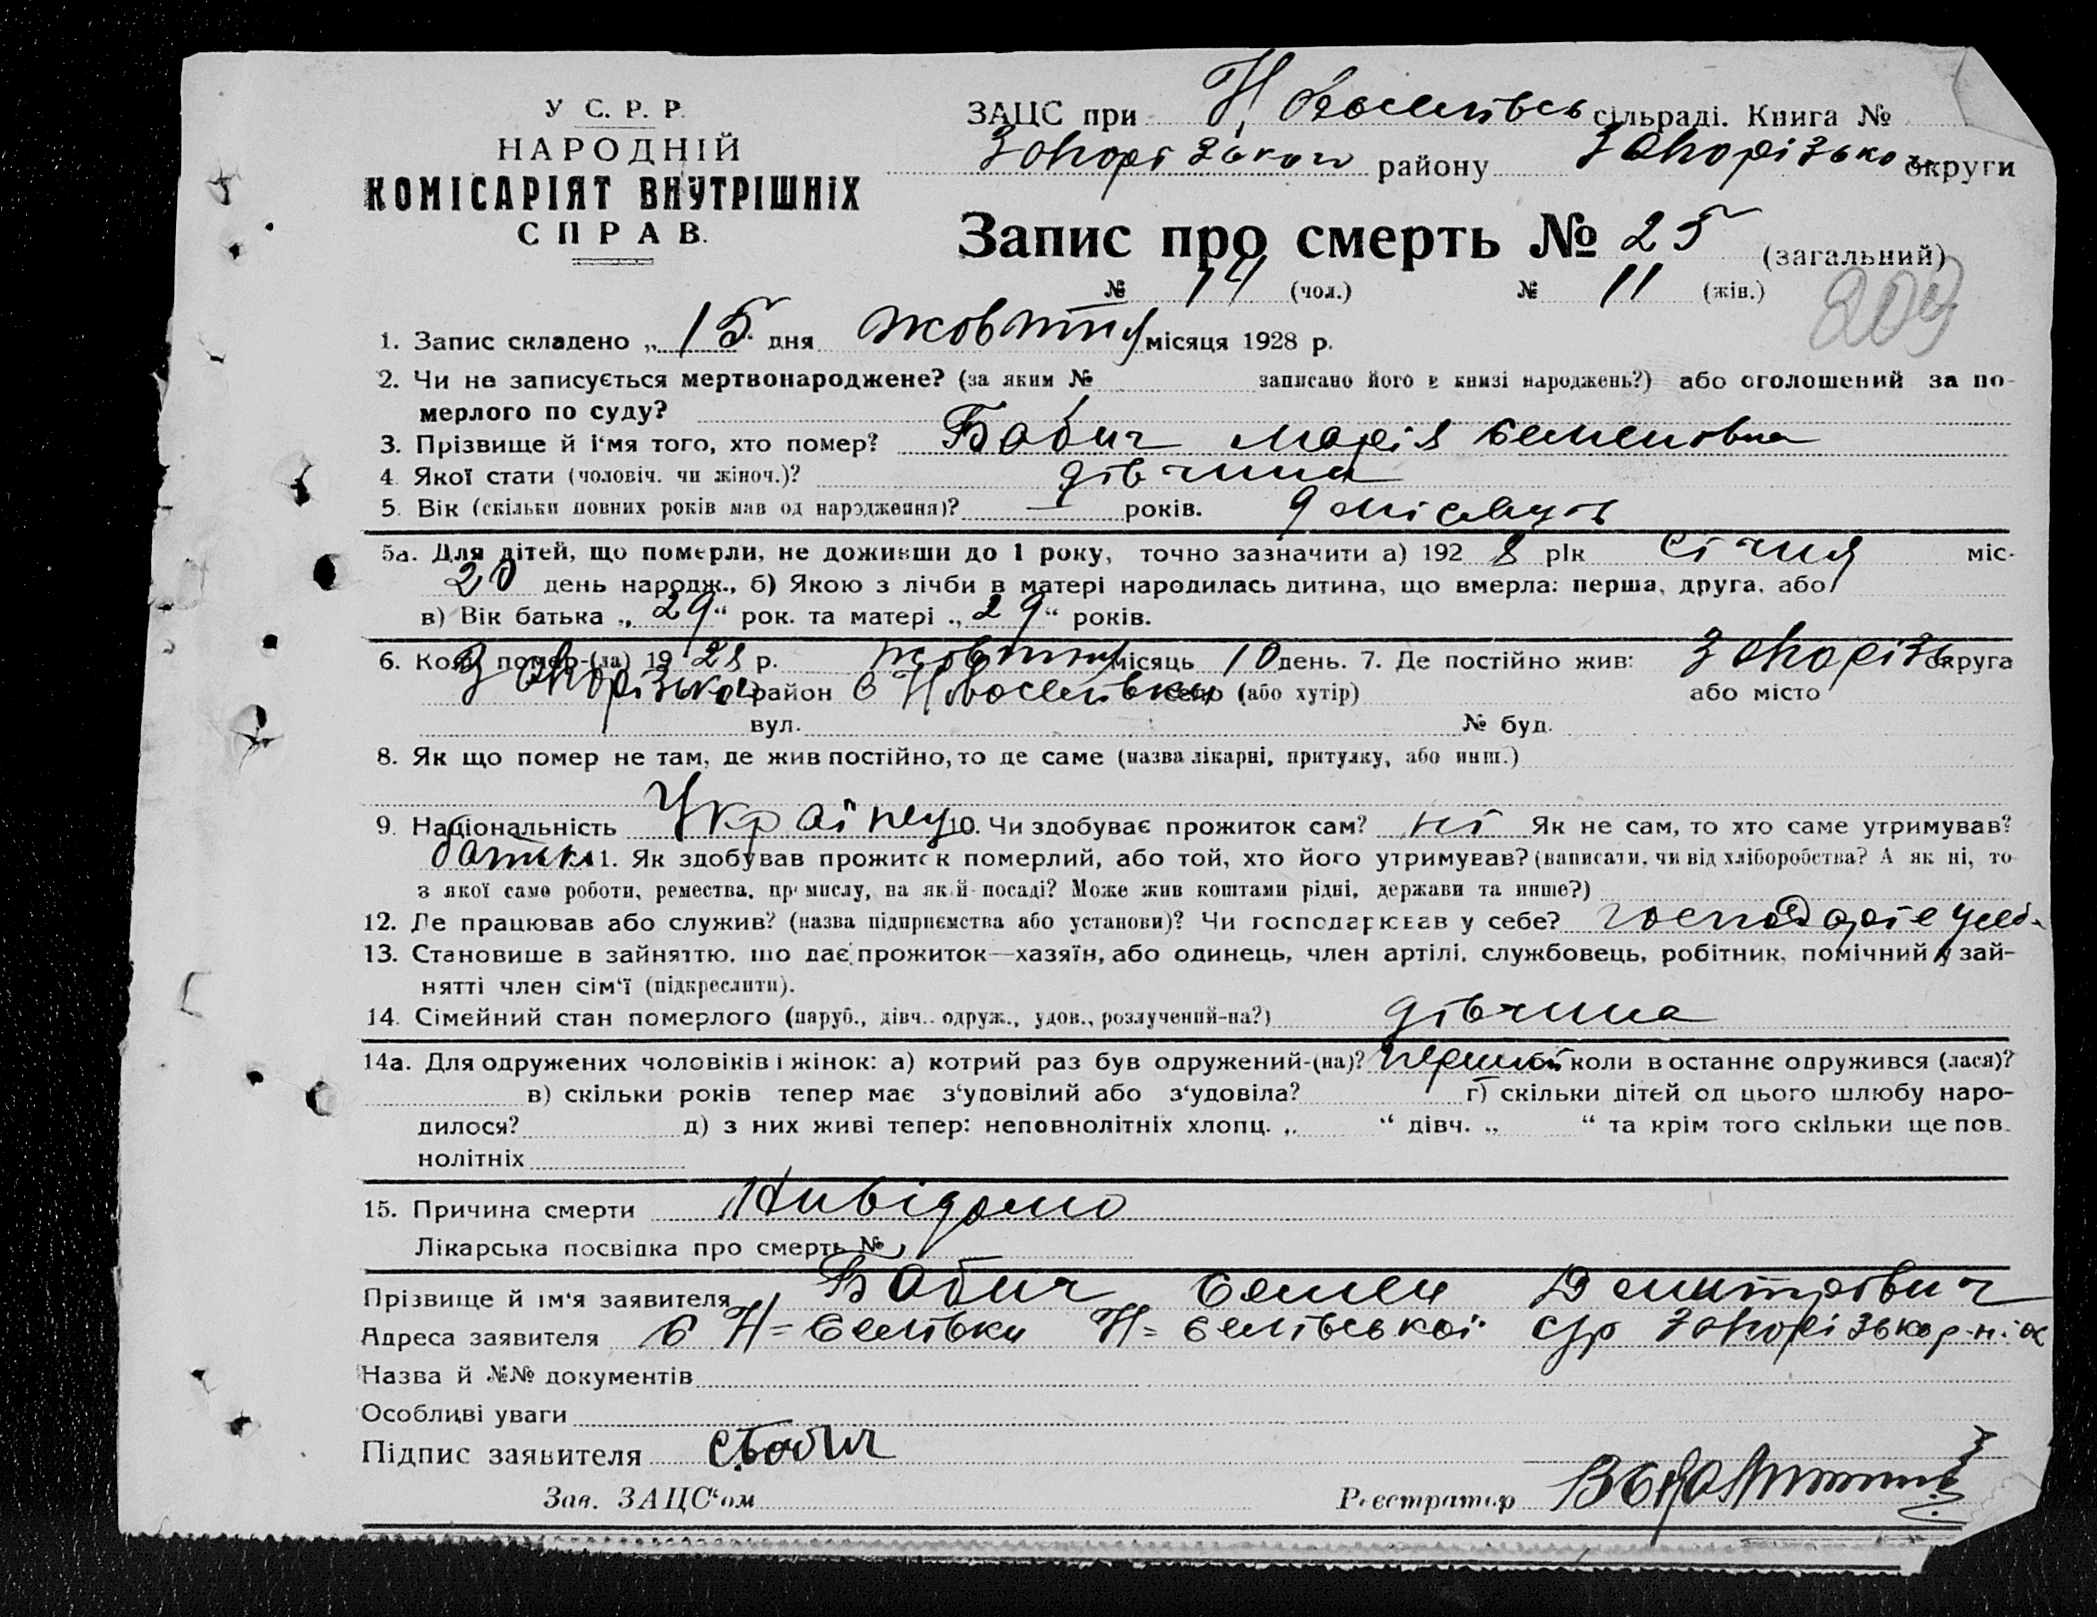 У С. Р. Р.
НАРОДНІЙ
КОМІСАРІЯТ ВНУТРІШНІХ
СПРАВ.
ЗАЦС при Н Воселівсь сільраді. Книга №
Запорізького району Запорізького округи
Запис про смерть № 25 (загальний)
№ 14 (чол.) № 11 (жін.)
209
1. Запис складено „ 15 дня жовтня місяця 1928 р.
2. Чи не записується мертвонароджене? (за яким № записано його в книзі народжень?) або оголошений за по-
мерлого по суду?
3. Прізвище й і'мя того, хто помер? Бабич Марія Семеновна
4. Якої стати (чоловіч. чи жіноч.)? дівчина
5. Вік (скільки повних років мав од народження)? — років. 9 місяців
5а. Для дітей, що померли, не доживши до 1 року, точно зазначити а) 192 8 рік січня міс-
20 день народж., б) Якою з лічби в матері народилась дитина, що вмерла: перша, друга, або
в) Вік батька „ 29 “ рок. та матері „ 29 “ років.
6. Коли помер-(ла) 19 28 р. жовтня місяць 10 день. 7. Де постійно жив: Запорізь округа
Запорізького район с Н Воселівки село (або хутір) або місто
вул. № буд.
8. Як що помер не там, де жив постійно, то де саме (назва лікарні, притулку, або инш.)
9. Національність Україну 10. Чи здобуває прожиток сам? ні Як не сам, то хто саме утримував?
батько 11. Як здобував прожиток померлий, або той, хто його утримував? (написати, чи від хліборобства? А як ні, то
з якої саме роботи, ремества, промислу, на якій посаді? Може жив коштами рідні, держави та инше?)
12. Де працював або служив? (назва підприємства або установи)? Чи господарював у себе? господаріє у себ
13. Становище в зайняттю, що дає прожиток—хазяїн, або одинець, член артілі, службовець, робітник, помічний у зай-
нятті член сім'ї (підкреслити).
14. Сімейний стан померлого (паруб., дівч. одруж., удов., розлучений-на?) дівчина
14а. Для одружених чоловіків і жінок: а) котрий раз був одружений-(на)? б) коли в останнє одружився (лася)?
в) скільки років тепер має з'удовілий або з'удовіла? г) скільки дітей од цього шлюбу наро-
дилося? д) з них живі тепер: неповнолітніх хлопц. „ “ дівч. „ “ та крім того скільки ще пов-
нолітніх
15. Причина смерти Нивідомо
Лікарська посвідка про смерть №
Прізвище й ім'я заявителя Бабич Семен Демитрович
Адреса заявителя с Н=Селівки Н=Селівської с/р Запорізько р-н
Назва й №№ документів
Особливі уваги
Підпис заявителя С.Бабич
Зав. ЗАЦС'ом Реєстратор